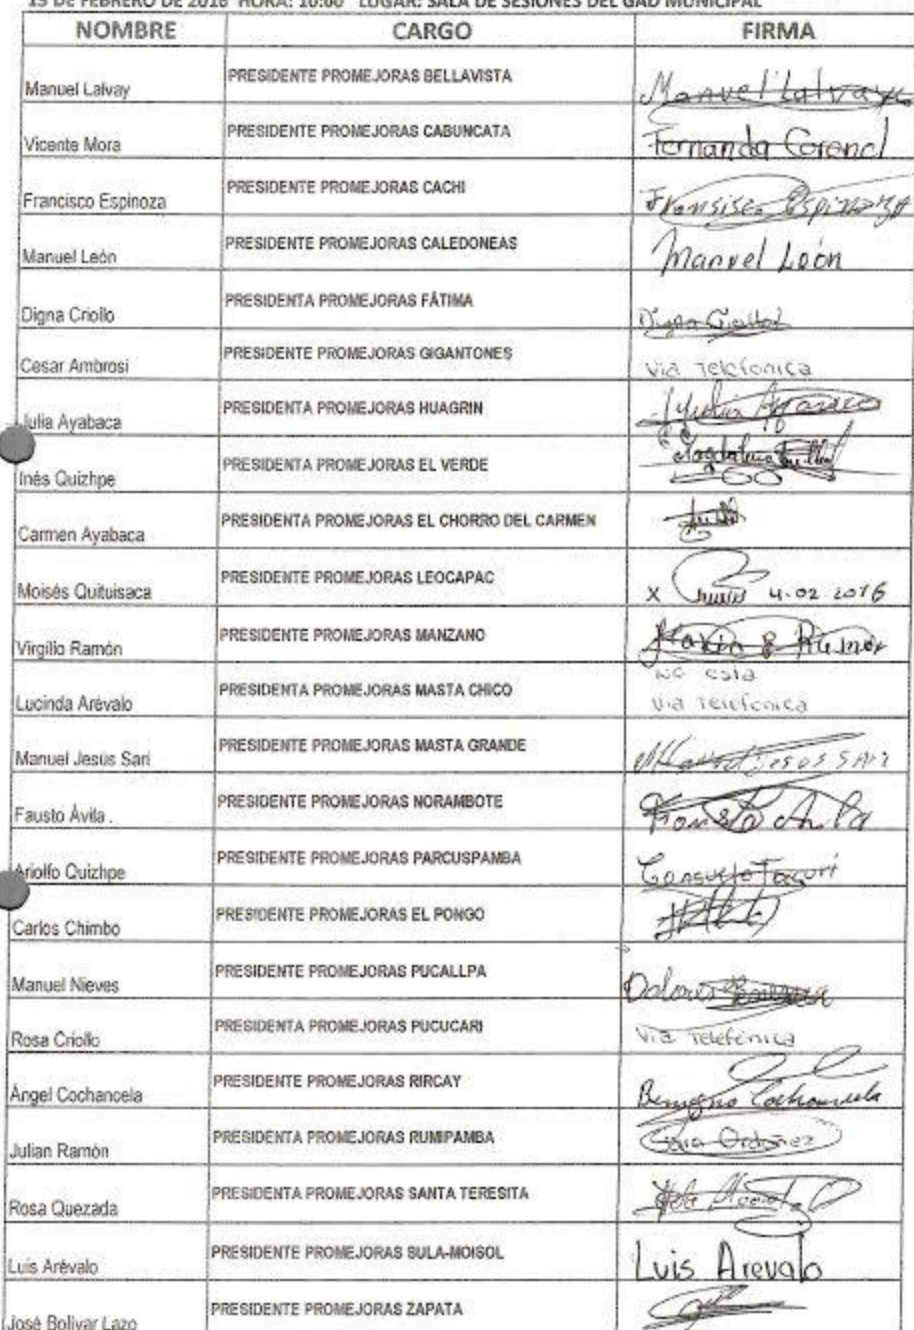 15 DE FEBRERO DE 2016 HORA: 10:00 LUGAR: SALA DE SESIONES DEL GAD MUNICIPAL
NOMBRE CARGO FIRMA
Manuel Lalvay PRESIDENTE PROMEJORAS BELLAVISTA Manuel Lalvay
Vicente Mora PRESIDENTE PROMEJORAS CABUNCATA Fernanda Coronel
Francisco Espinoza PRESIDENTE PROMEJORAS CACHI Fransisco Espinoza
Manuel León PRESIDENTE PROMEJORAS CALEDONEAS Manuel León
Digna Criollo PRESIDENTA PROMEJORAS FÁTIMA Digna Criollo
Cesar Ambrosi PRESIDENTE PROMEJORAS GIGANTONES Via Telefonica
Julia Ayabaca PRESIDENTE PROMEJORAS HUAGRIN
Inés Quizhpe PRESIDENTE PROMEJORAS EL VERDE Magdalena
Carmen Ayabaca PRESIDENTA PROMEJORAS EL CHORRO DEL CARMEN
Moisés Quituisaca PRESIDENTE PROMEJORAS LEOCAPAC x 4.02.2016
Virgilio Ramón PRESIDENTE PROMEJORAS MANZANO
Lucinda Arévalo PRESIDENTE PROMEJORAS MASTA CHICO No esta
Via Telefonica
Manuel Jesús Sari PRESIDENTE PROMEJORAS MASTA GRANDE Manuel Jesus Sari
Fausto Ávila . PRESIDENTE PROMEJORAS NORAMBOTE Fausto Avila
Ariolfo Quizhpe PRESIDENTE PROMEJORAS PARCUSPAMBA Consuelo Tacuri
Carlos Chimbo PRESIDENTE PROMEJORAS EL PONGO
Manuel Nieves PRESIDENTE PROMEJORAS PUCALLPA Dolores
Rosa Criollo PRESIDENTA PROMEJORAS PUCUCARI Via Telefónica
Ángel Cochancela PRESIDENTE PROMEJORAS RIRCAY Benigno Cochancela
Julian Ramón PRESIDENTA PROMEJORAS RUMIPAMBA Sara Ordoñez
Rosa Quezada PRESIDENTA PROMEJORAS SANTA TERESITA
Luis Arévalo PRESIDENTE PROMEJORAS SULA-MOISOL Luis Arevalo
José Bolivar Lazo PRESIDENTE PROMEJORAS ZAPATA